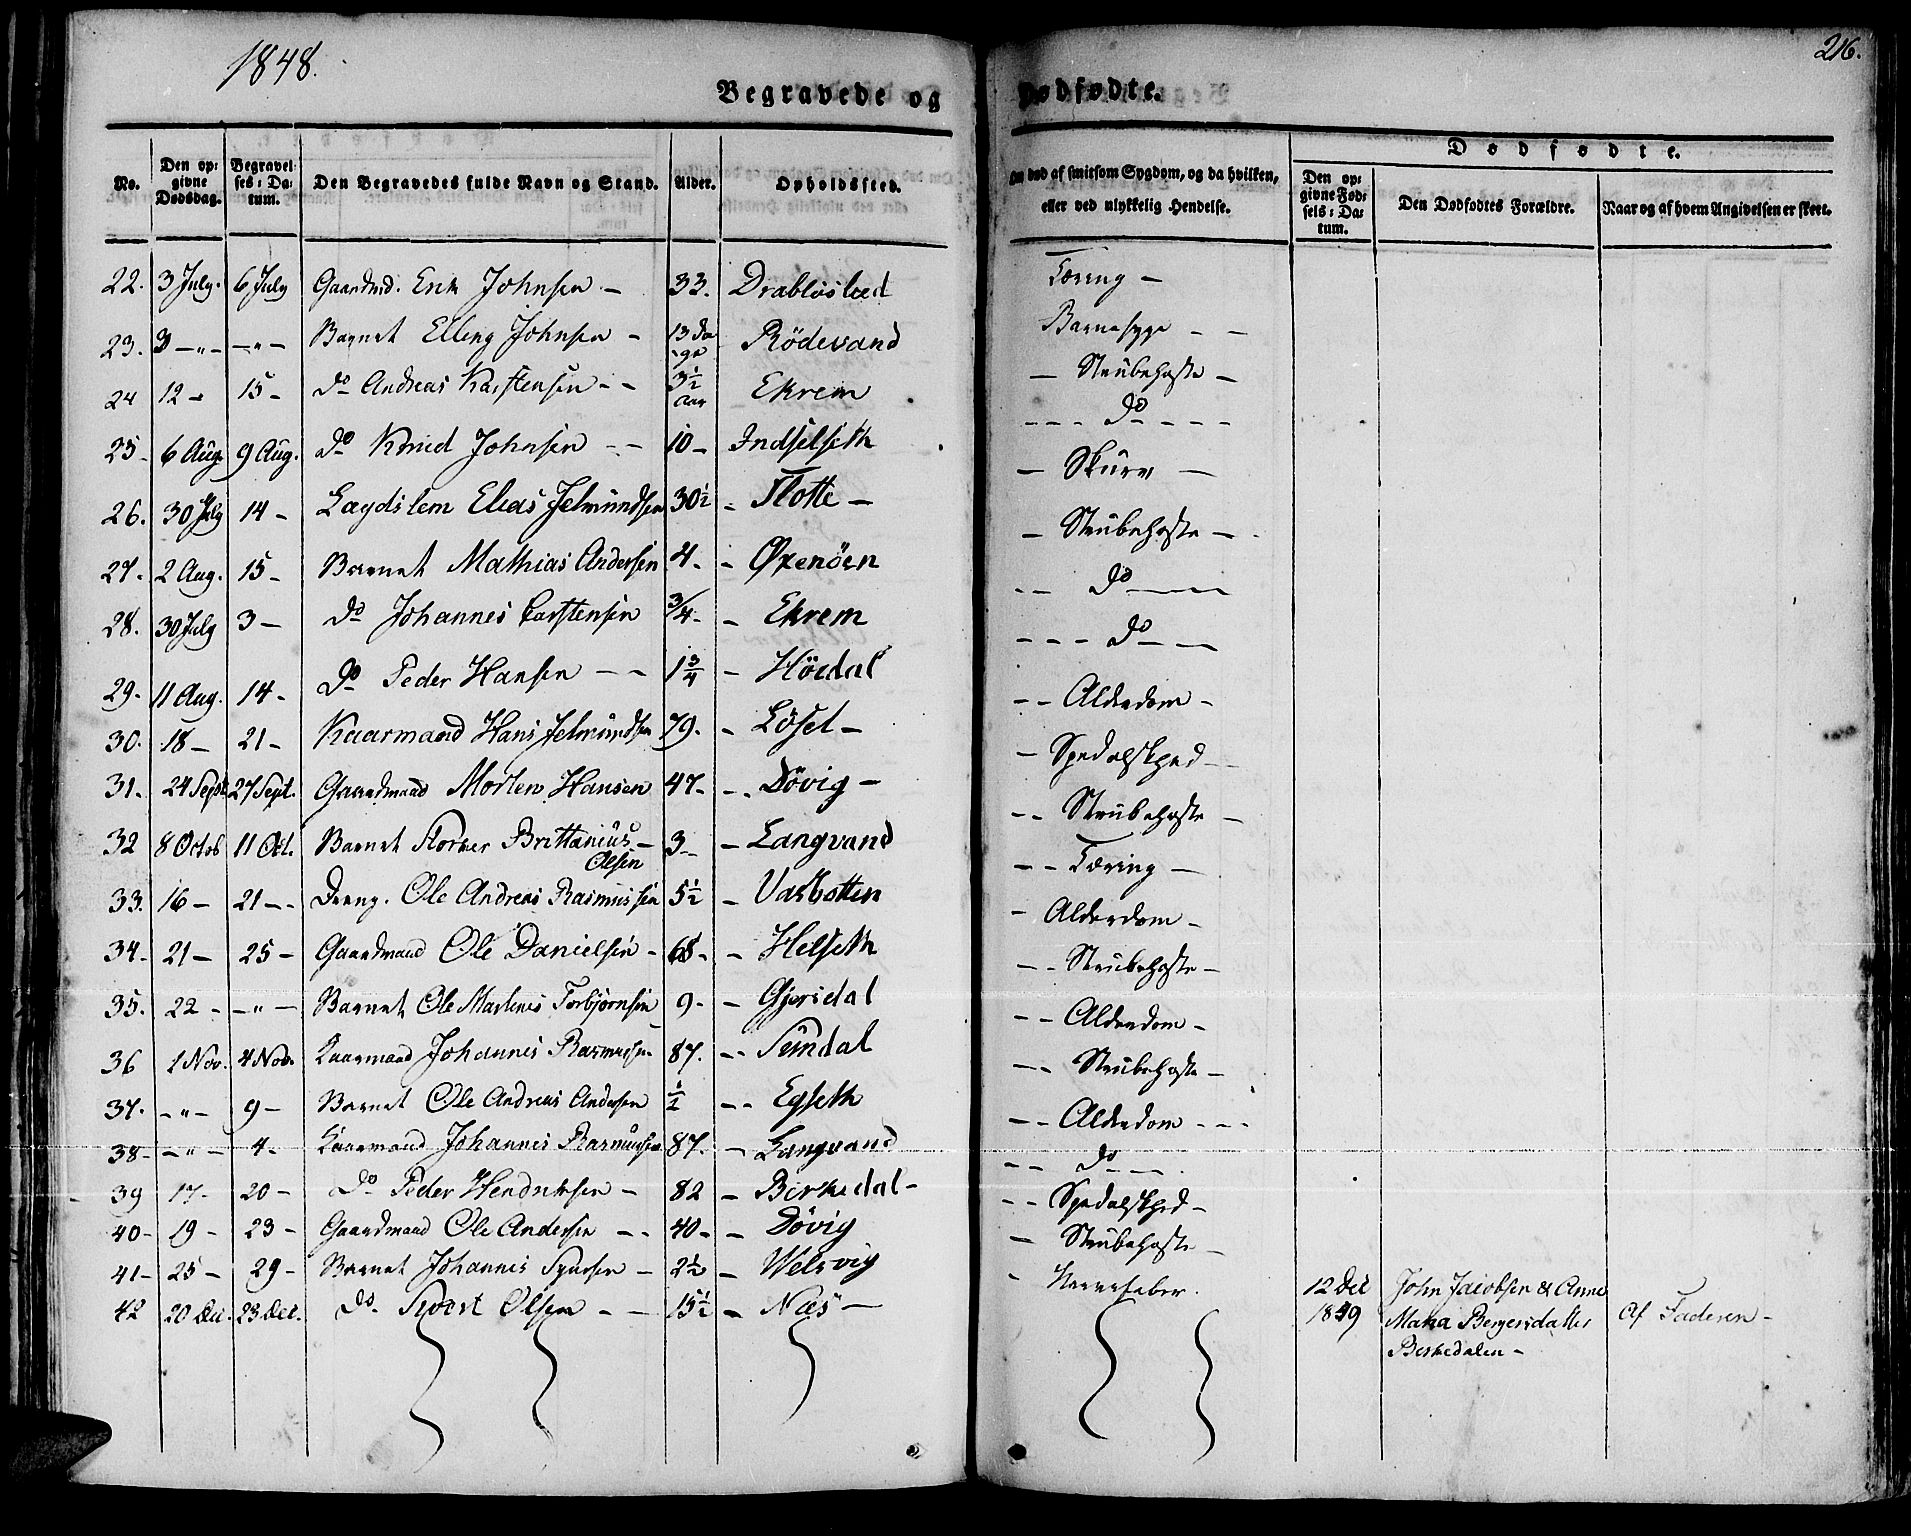 1848.
216.
Begravede og Dødfødte.
No.
Den op:
givne
Dødsdag.
Begravel:
ses: Da:
tum.
Den Begravedes fulde Navn og Stand.
Alder.
Opholdssted.
Om død af smitsom Sygdom, og da hvilken,
eller ved ulykkelig Hendelse.
Dødfødte.
Den op:
givne Fød:
sels: Da:
tum.
Den Dødfødtes Forældre.
Naar og af hvem Angivelsen er skeet.
22. 3 July. 6 July Gaardmd. Erik Johnsen. — 33. Drabløs
23. 3 —"— —"— Barnet Elling Johnsen — 13 Da
ge Rödevand
24 12 — 15 — Do Andreas Karstensen — — 3½
aar Ekrem
25 — 6 Aug 9 Aug. Do Knud Johnsen — — 10 — Indselseth
26. 30 July 14 — Lægdslem Elias Jelmundsen 30½ — Flotte —
27. 2 Aug. 15 — Barnet Mathias Andersen 4. — Øxenöen
28. 30 July 3 — Do Johannes Carstensen 3/4 — — Ekrem
29. 11 Aug. 14 — Do Peder Hansen — — 1 3/4 — Höedal
30. 18 — 21 — Kaarmand Hans Jelmundsen 79. — Lösel —
31. 24 Sept 27 Sept. Gaardmand Morten Hansen 47 — — Dövig —
32 8 Octob 11 Oct. Barnet Brittanius —
Olsen 3 — — Langvand
33. 16 — 21 — Dreng. Ole Andreas Rasmussen 5½ —
34. 21 — 25 — Gaardmand Ole Danielsen — 68 — — Helseth
35. 22 — —"— Barnet Ole Martinus Torbjørnsen 9 — — Gjersdal
36 1 Nov. 4 Nov. Kaarmand Johannes Rasmussen 87. —
37. —"— 9 — Barnet Ole Andreas Andersen ½ — — Egseth
38 — —"— 4 — Kaarmand Johannes Rasmussen 87. — Langvand
39 17 — 20 — Do Peder Hendriksen — 82 — Birkedal —
40 — 19 — 23 — Gaardmand Ole Andersen — — 40 — — Dövig
41 — 25 — 29 — Barnet Johannes — 2½ — Welsvig
42 20 Dec. 23 Dec. Do. Sivert Olsen — — 15½ — Næs —
Tæring —
Barnesyge — —
— Strubehoste —
— — — Do — — — —
— Skurv —
— Strubehoste — —
— — Do — — —
— — — Do — —
— — Alderdom —
— Spedalskhed —
— — Strubehoste —
— — Tæring —
— Alderdom —
— — Strubehoste —
— — Alderdom —
— — Strubehoste —
— — Alderdom — — —
— — Do — — .
— — Spedalskhed —
— Strubehoste —
— Nervefeber.
12 Dec
1849
John Jacobsen & Anne
Maria Bergersdatter
Birkedalen —
Af Faderen —